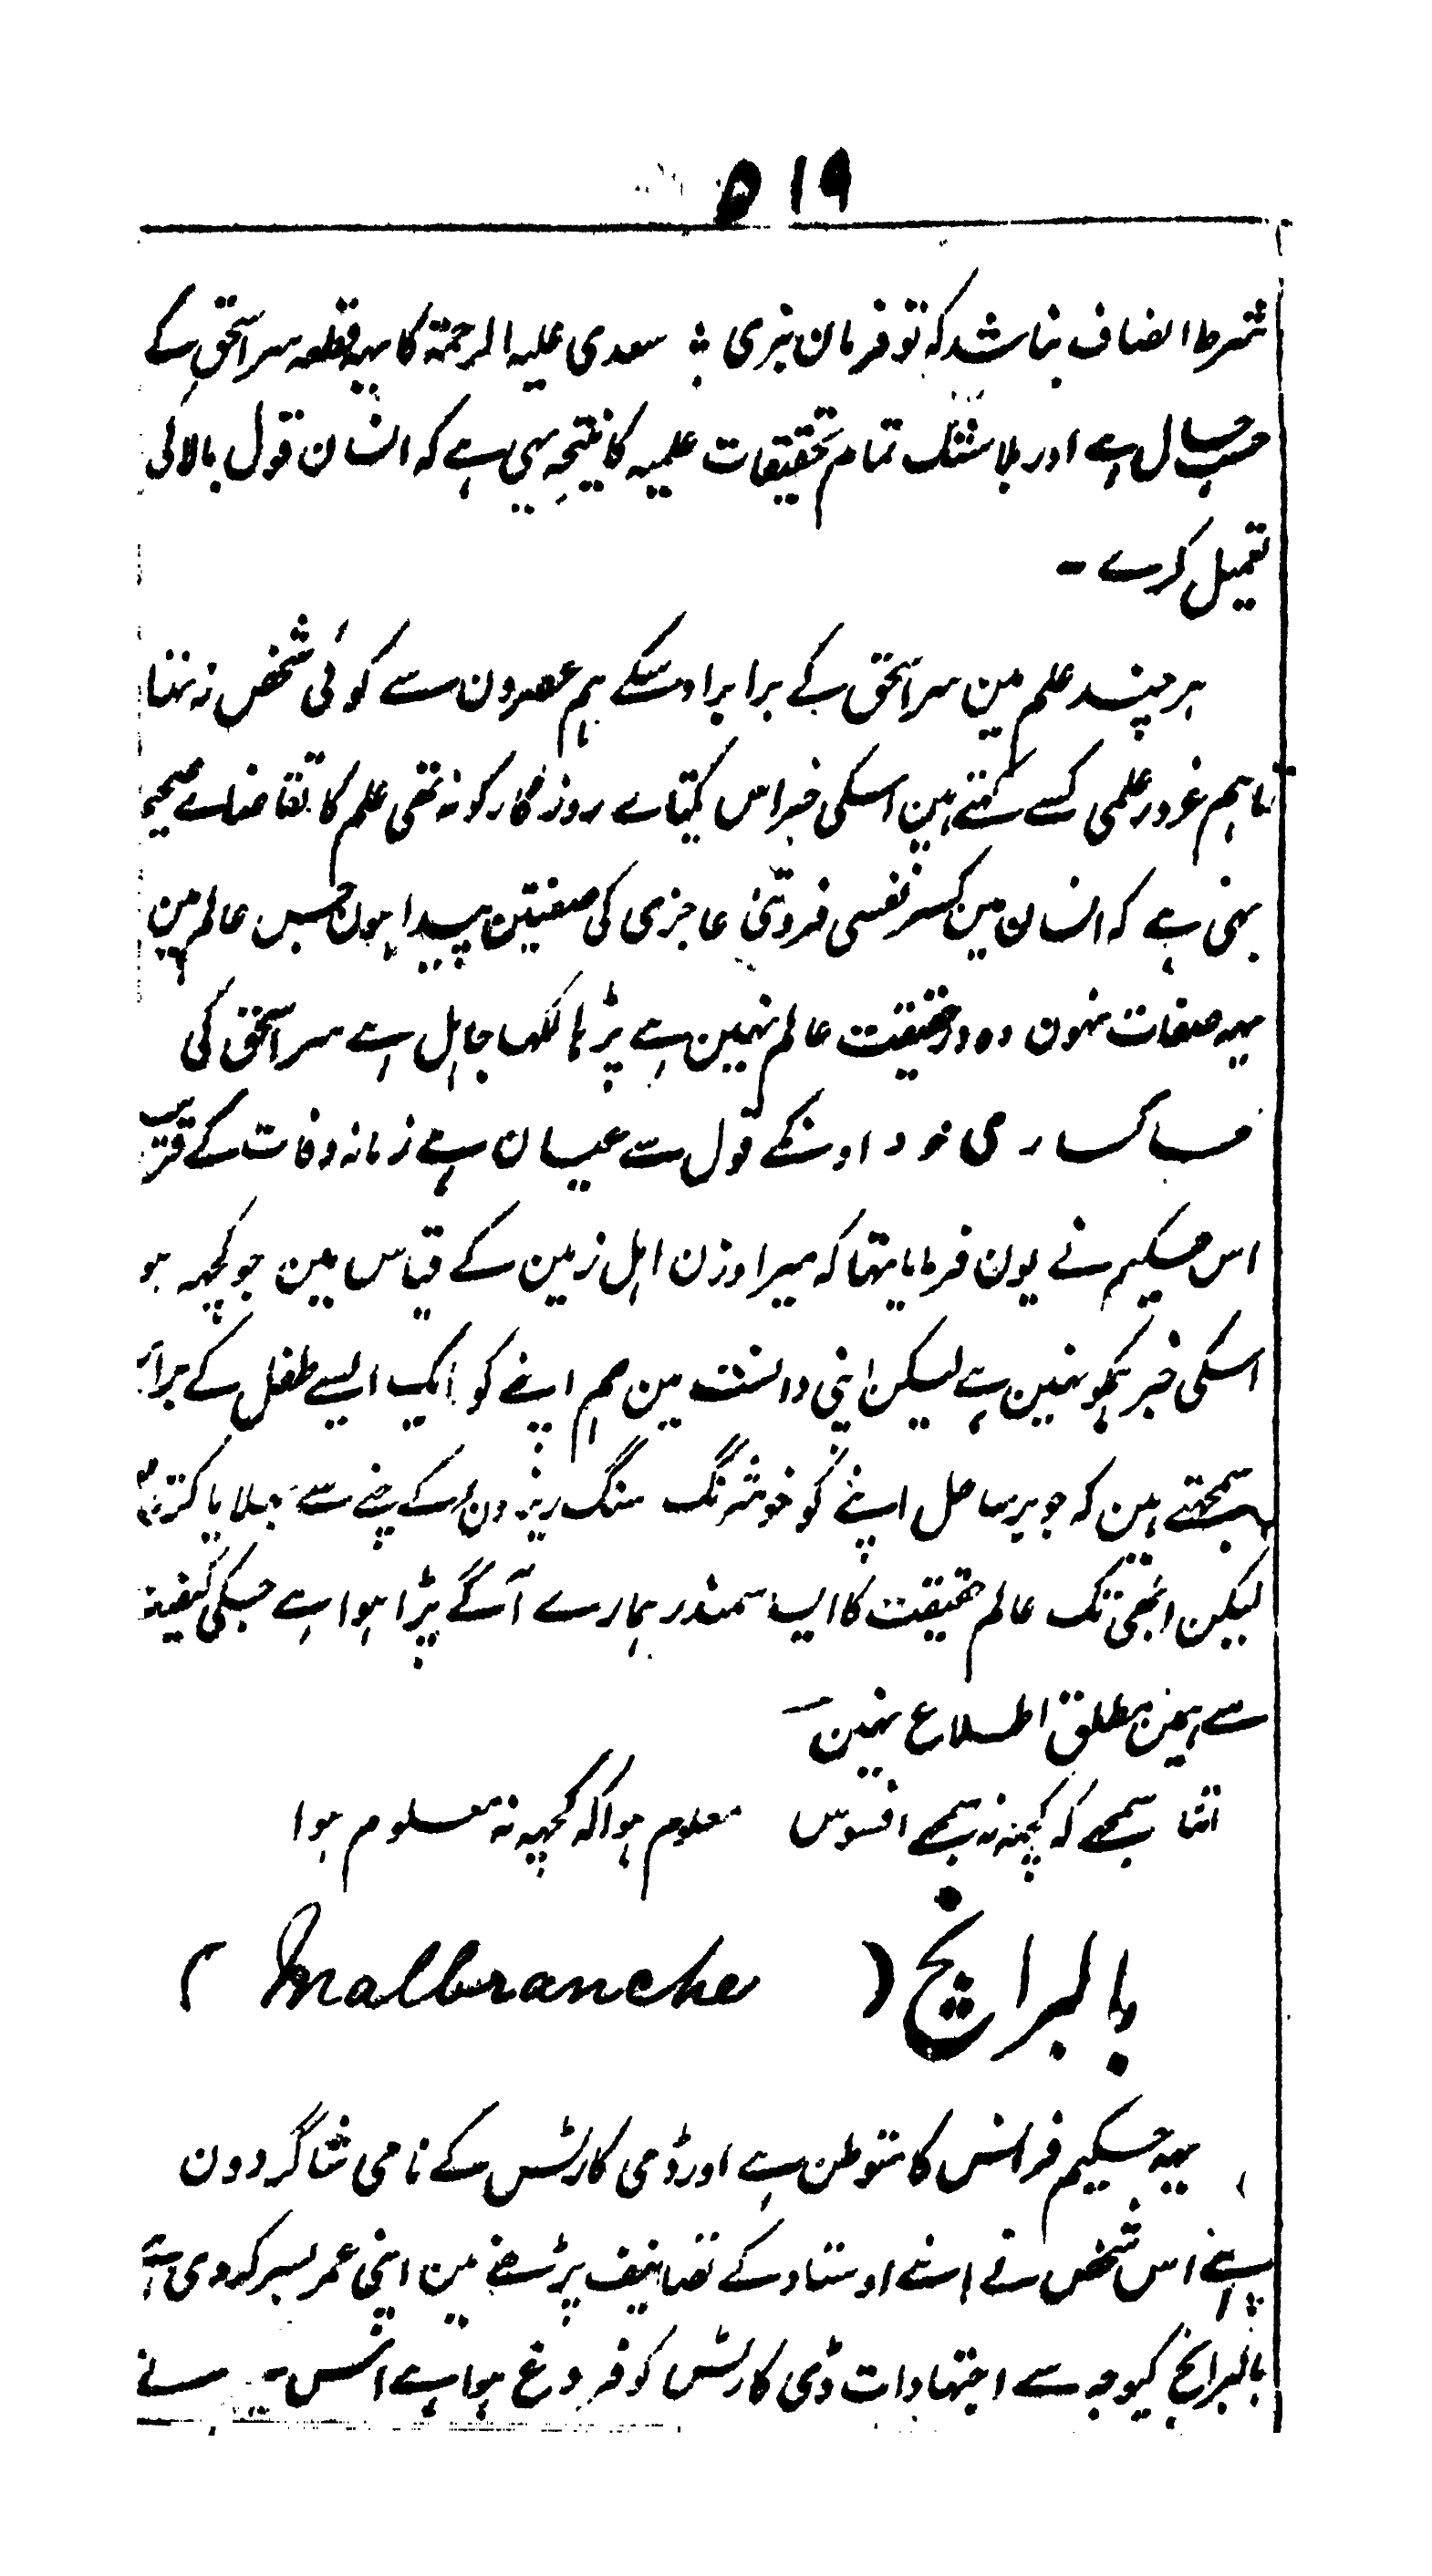 ۵۱۹
شرط انصاف نباشد که تو فرمان نبری ؛ سعدی علیہ الرحمۃ کا یہہ قطعہ سر اسحٰق کے
حسب حال ہے اور بلا شک تمام تحقیقات علمیہ کا نتیجہ یہی ہے کہ انسان قول بالا کی
تعمیل کرے -
ہر چند علم مین سر اسحٰق کے برابر اوسکے ہم عصرون سے کوئی شخص نہ تہا
تاہم غرور علمی کسے کہتے ہین اسکی خبر اس یکتاے روزگار کو نہ تھی علم کا تقاضاے صحیح
یہی ہے کہ انسان مین کسر نفسی فروتنی عاجزی کی صفتین پیدا ہون جس عالم مین
یہہ صفات نہون وہ در حقیقت عالم نہین ہے پڑہا لکھا جاہل ہے سر اسحٰق کی
خاکساری خود اونکے قول سے عیان ہے زمانہ وفات کے قریب
اس حکیم نے یون فرمایا تہا کہ میرا وزن اہل زمین کے قیاس مین جو کچہہ ہو
اسکی خبر ہمکو نہین ہے لیکن اپنی دانست مین ہم اپنے کو ایک ایسے طفل کے برابر
سمجھتے ہین کہ جو بر ساحل اپنے کو خوشرنگ سنگ ریزون کے چنے سے بہلایا کرتا ہے
لیکن ابھی تک عالم حقیقت کا ایک سمندر ہمارے آگے پڑا ہوا ہے جسکی کیفیت
سے ہمین مطلق اطلاع نہین -
اتنا سمجھے کہ کچہہ نہ سمجھے افسوس معلوم ہوا کہ کچہہ نہ معلوم ہوا
مالبرانچ ( Malbranche )
یہہ حکیم فرانس کا متوطن ہے اور ڈی کارٹس کے نامی شاگردون
سے ہے اس شخص نے اپنے اوستاد کے تصانیف پڑھنے مین اپنی عمر بسر کر دی ہے
مالبرانچ کیوجہ سے اجتہادات ڈی کارٹس کو فروغ ہوا ہے اس نے